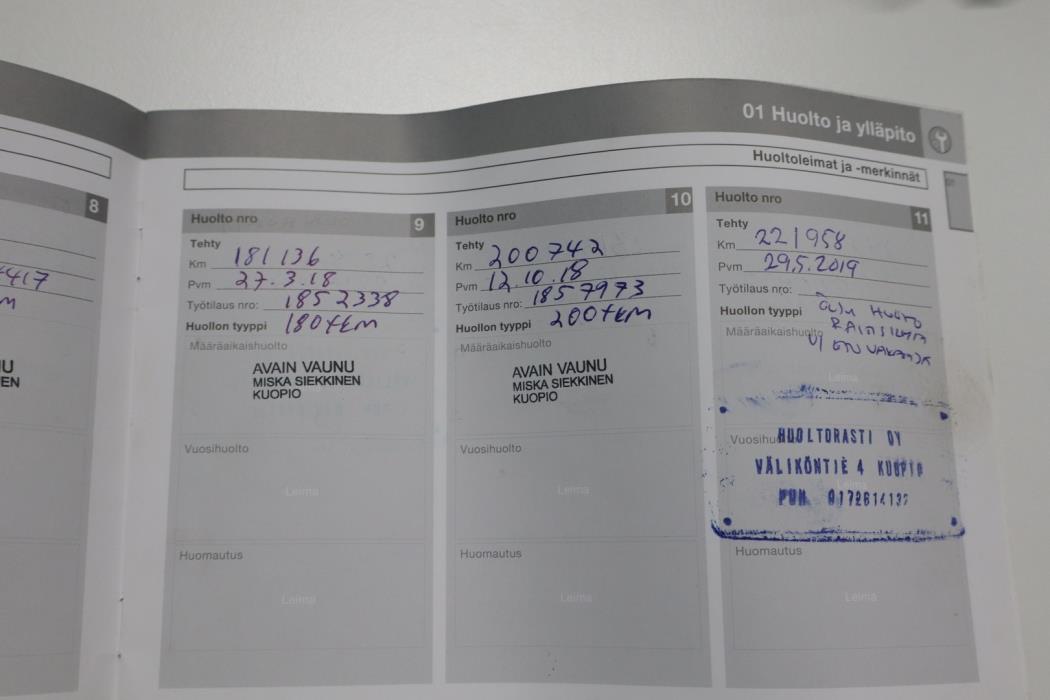 01 Huolto ja ylläpito
Huoltoleimat ja -merkinnät
8
417
Huolto nro 9
Tehty
Km 181 136
Pvm 27.3.18
Työtilaus nro: 1852338
Huollon tyyppi 180 tkm
Määräaikaishuolto
AVAIN VAUNU
MISKA SIEKKINEN
KUOPIO
Vuosihuolto
Leima
Huomautus
Leima
Huolto nro 10
Tehty
Km 200 742
Pvm 12.10.18
Työtilaus nro: 1857973
Huollon tyyppi 200 tkm
Määräaikaishuolto
AVAIN VAUNU
MISKA SIEKKINEN
KUOPIO
Vuosihuolto
Leima
Huomautus
Leima
Huolto nro 11
Tehty
Km 221958
Pvm 29.5.2019
Työtilaus nro:
Huollon tyyppi ÖLJY HUOLTO
Määräaikaishuolto
Leima
HUOLTORASTI OY
VÄLIKÖNTIE 4 KUOPIO
PUH. 0172614132
Huomautus
Leima